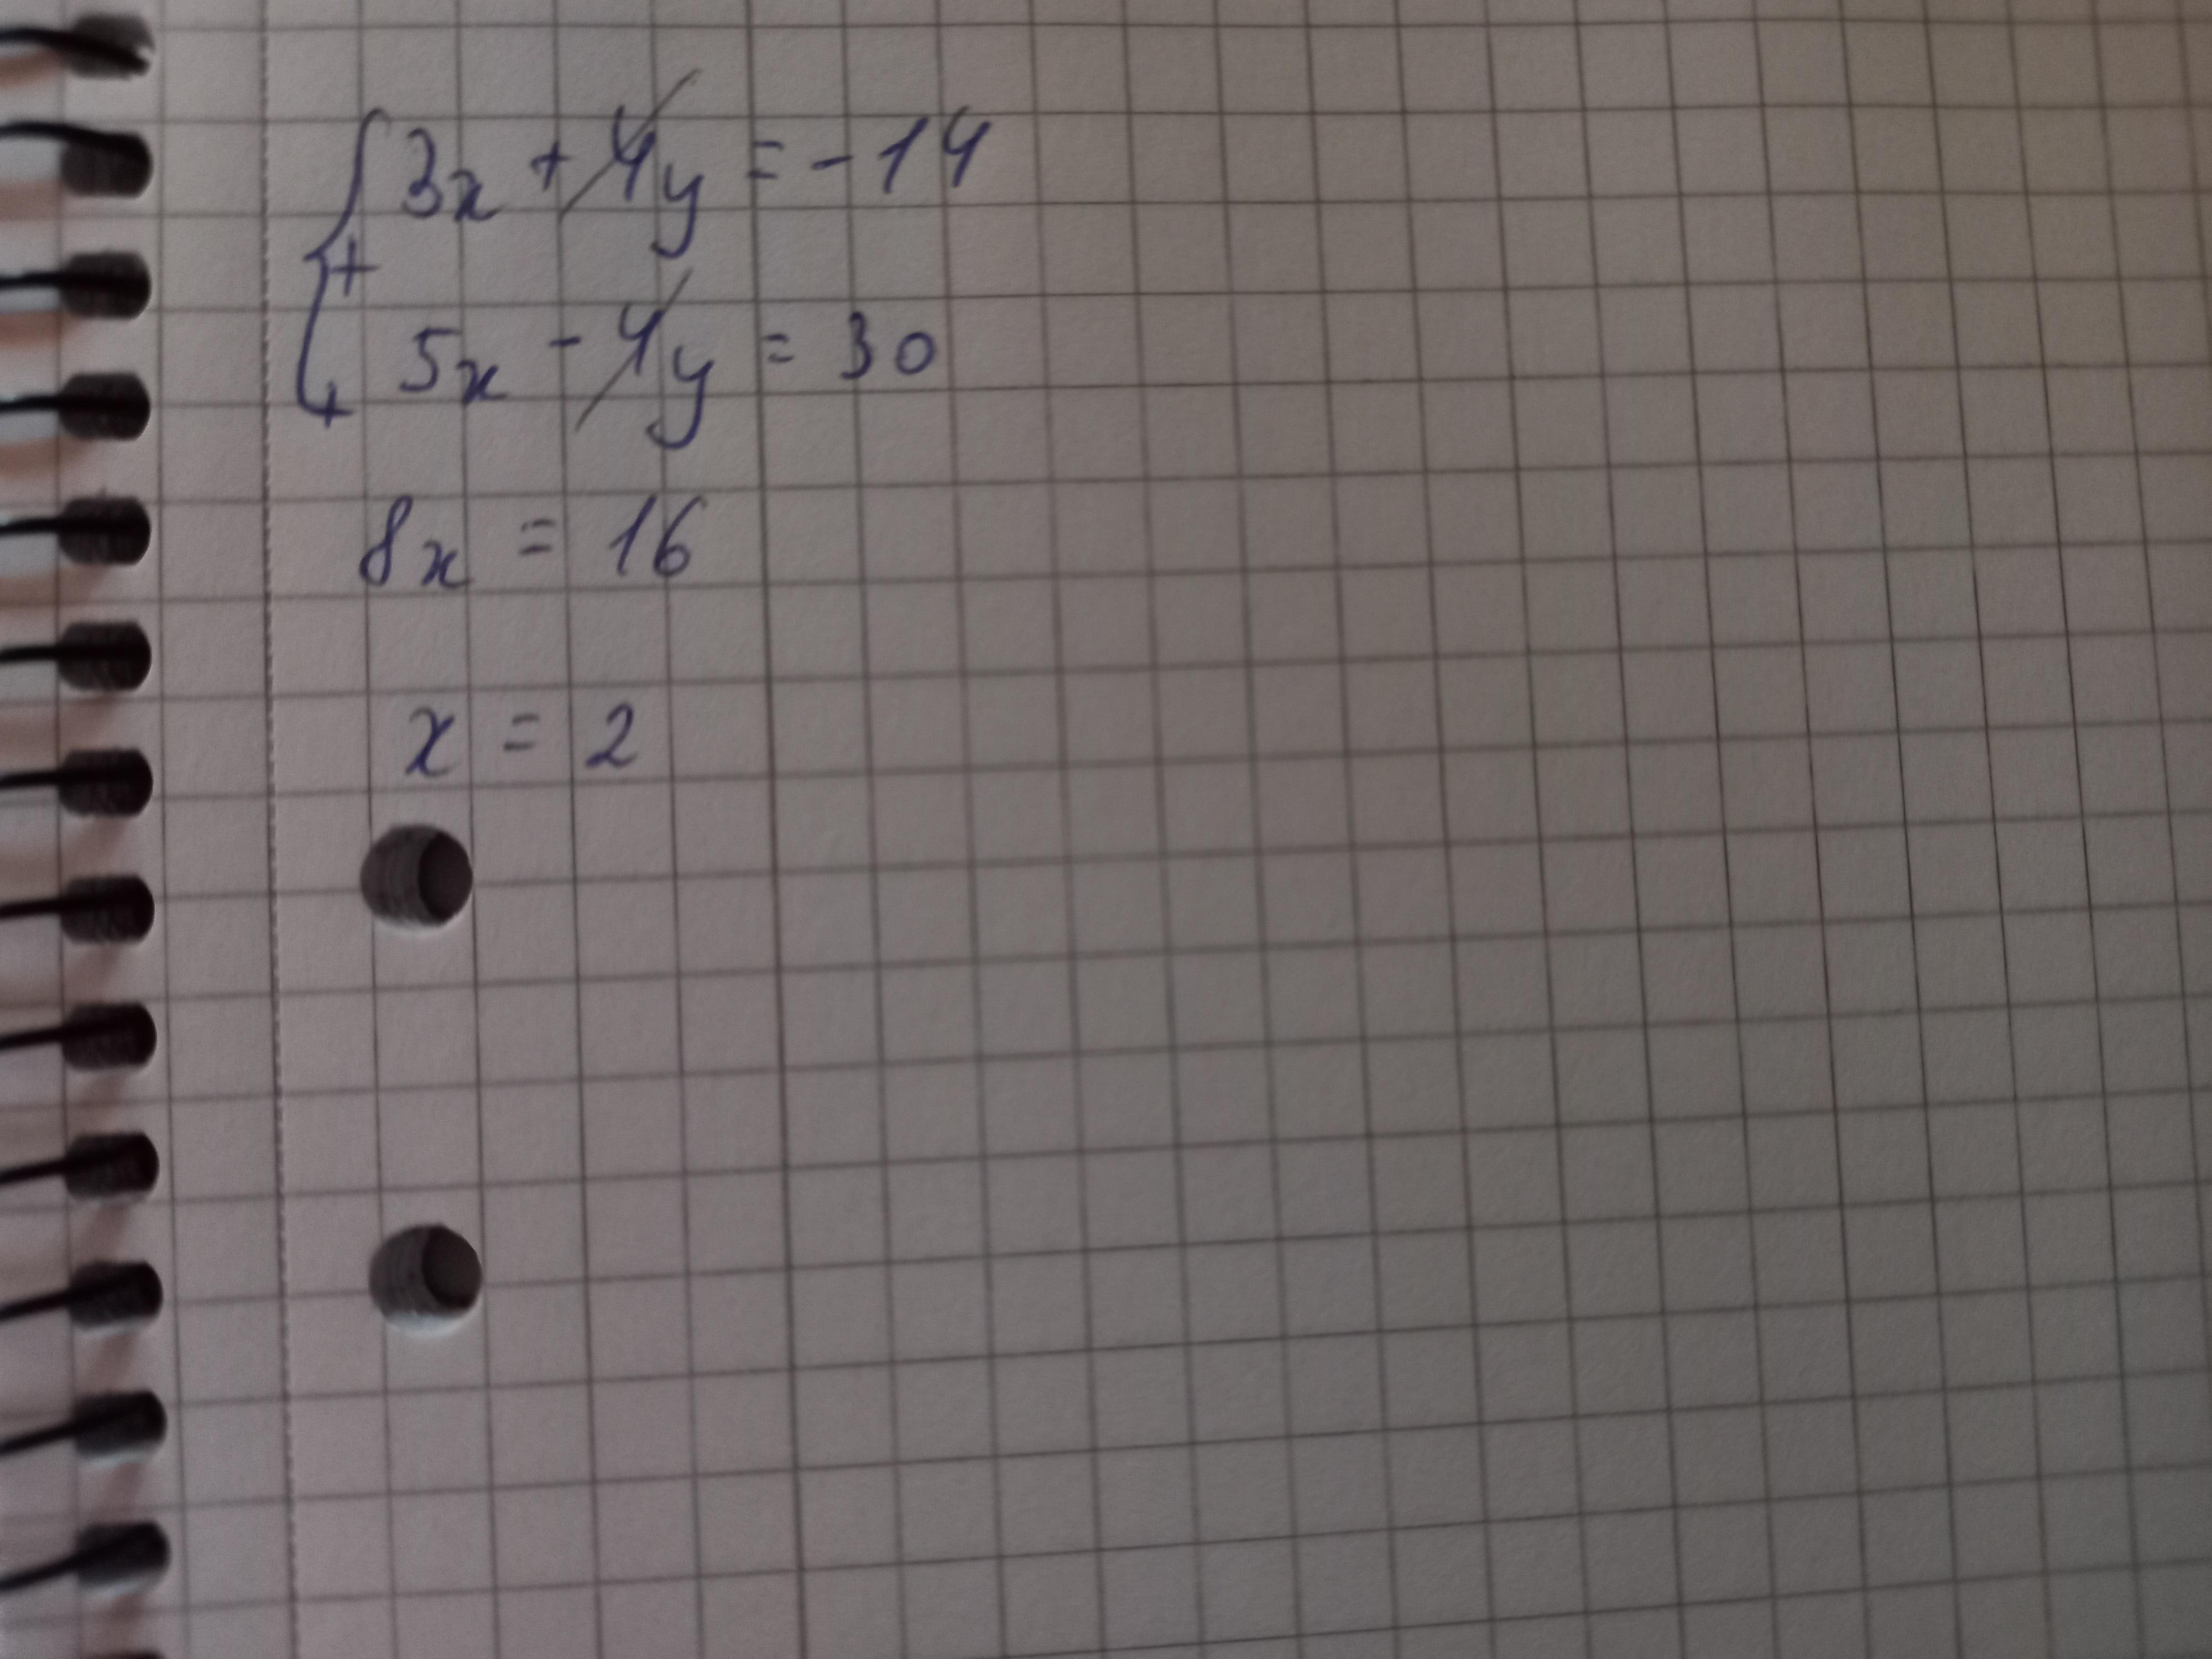 3x + 4y = -14
+
5x - 4y = 30
8x = 16
x = 2